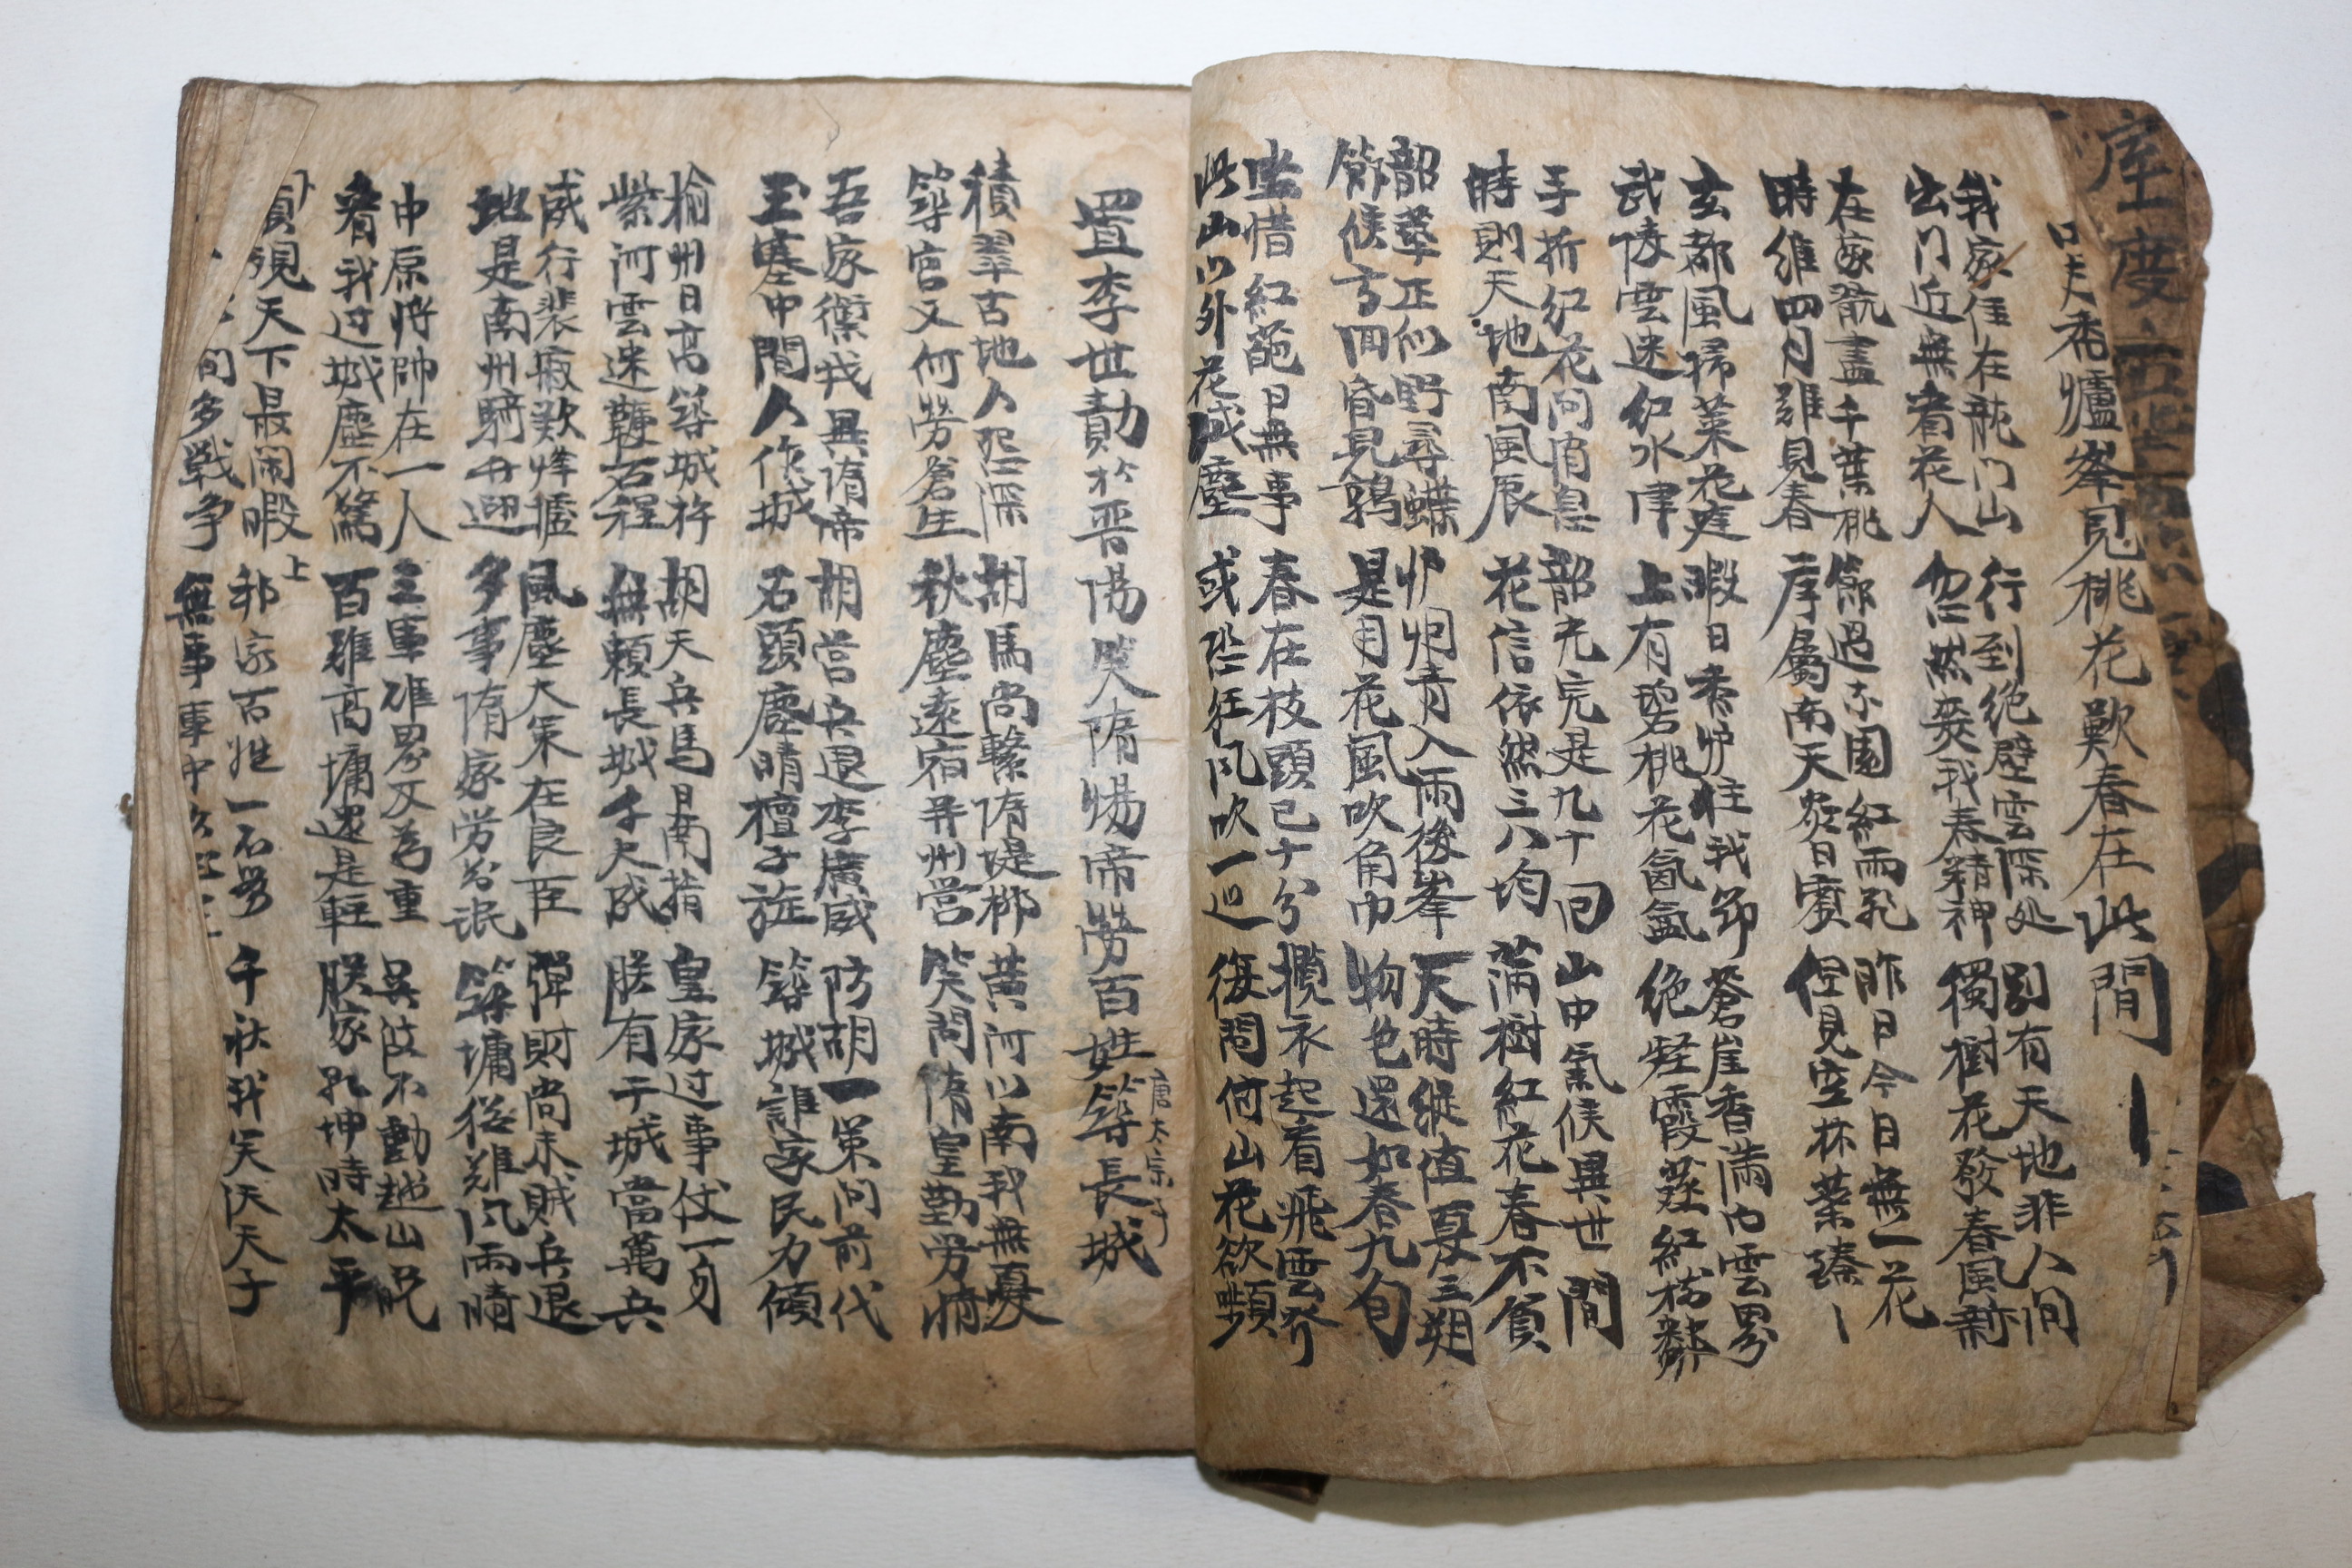 四月香爐峯見桃花歎春在此間
我家住在龍門山 行到絶壁雲深処 別有天地非人間
出門近無看花人 忽然癸我春精神 獨樹花發春風新
在家翫盡千葉桃 節過小園紅雨飛 昨日今日無一花
時維四月難見春 序屬南天炎日賓 但見空林葉蓁
玄都風掃菜花庭 暇日香炉住我節 蒼崖香滿白雲界
武陵雲迷紅水津 上有碧桃花氤氳 絶壁霞蒸紅
手折紅花問消息 韶光完是九十回 山中氣候異世間
時則天地南風辰 花信依然三八均 滿樹紅花春不貧
韶華正似野尋蝶 炉烟青入雨後峯 天時縱值夏三朔
節候 四 見鶉 是月花風吹角巾 物色還如春九旬
坐惜紅葩日無事 春在枝頭已十分 攬衣起看飛雲
此山以外花盛塵 或恐狂風吹一巡 復問何山花欲嚬
置李世勣於晋陽笑隋煬帝勞百姓築長城
唐太宗
積翠古地人怨深 胡馬尚繫隋堤柳 黃河以南我無憂
築宮又何勞蒼生 秋塵遠宿并州營 笑問隋皇勤勞情
吾家禦我異隋帝 胡營兵退李廣威 防胡一策問前代
玉塞中間人作城 石頭塵晴檀子旌 築城誰家民力傾
楡州日高築城杵 胡天兵馬日南指 皇家过事仗一身
紫河雲迷鞭石程 無賴長城千尺成 朕有干城當萬兵
威行裴寂歎烽墟 風塵大策在良臣 殫財尚未賊兵退
地是南州騎舟迎 多事隋家劳苦氓 築墉從難風雨晴
中原將帥在一人 三軍雄略又若重 吳 不動越山
看我过城塵不驚 百雉高墉還是輕 朕家乾坤時太平
視天下最閑暇 上 邪家百姓一石 千秋我笑 天子
間多戰爭 無事軍中